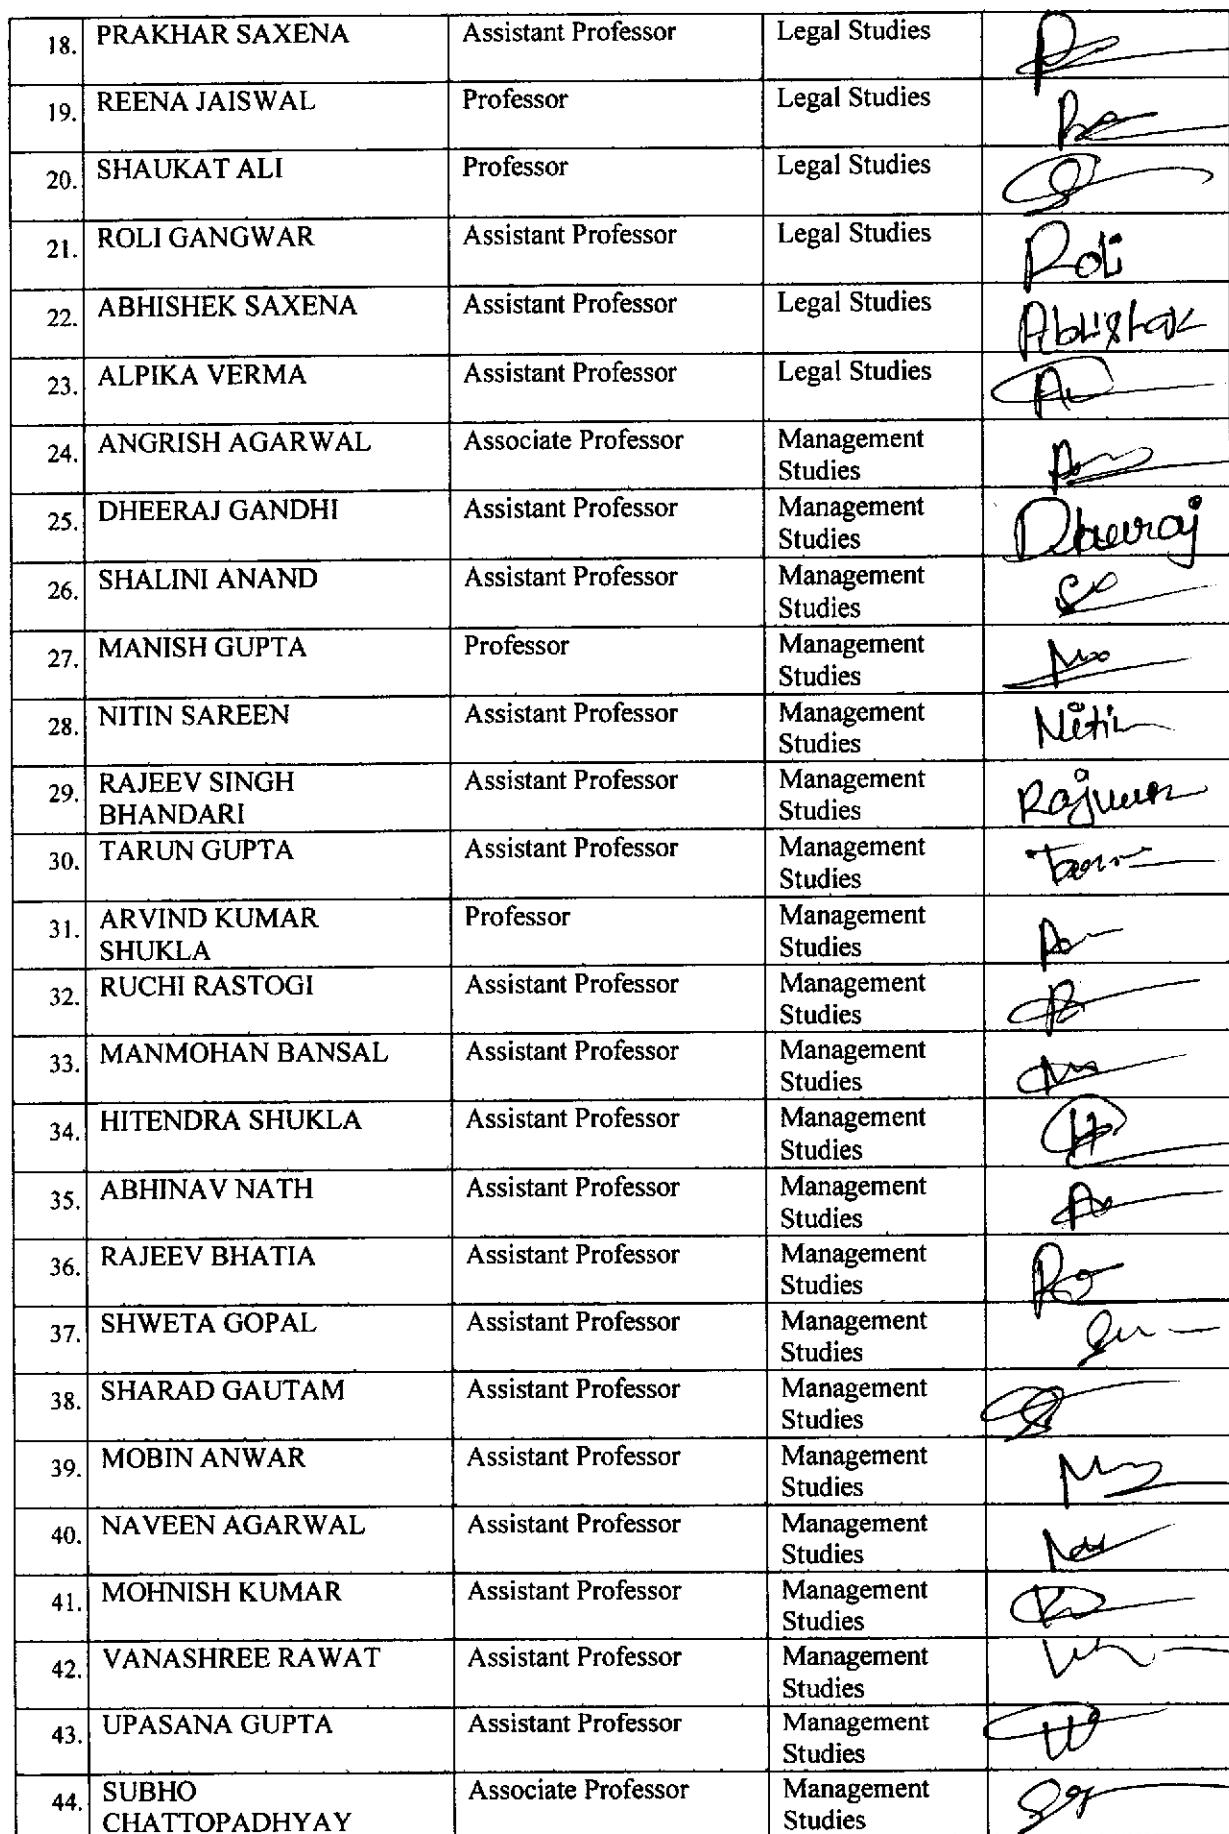 18. PRAKHAR SAXENA Assistant Professor Legal Studies
19. REENA JAISWAL Professor Legal Studies
20. SHAUKAT ALI Professor Legal Studies
21. ROLI GANGWAR Assistant Professor Legal Studies Roli
22. ABHISHEK SAXENA Assistant Professor Legal Studies Abhishek
23. ALPIKA VERMA Assistant Professor Legal Studies
24. ANGRISH AGARWAL Associate Professor Management
Studies
25. DHEERAJ GANDHI Assistant Professor Management Dheeraj
Studies
26. SHALINI ANAND Assistant Professor Management
Studies
27. MANISH GUPTA Professor Management
Studies
28. NITIN SAREEN Assistant Professor Management Nitin
Studies
29. RAJEEV SINGH Assistant Professor Management
BHANDARI Studies
30. TARUN GUPTA Assistant Professor Management
Studies
31. ARVIND KUMAR Professor Management
SHUKLA Studies
32. RUCHI RASTOGI Assistant Professor Management
Studies
33. MANMOHAN BANSAL Assistant Professor Management
Studies
34. HITENDRA SHUKLA Assistant Professor Management
Studies
35. ABHINAV NATH Assistant Professor Management
Studies
36. RAJEEV BHATIA Assistant Professor Management
Studies
37. SHWETA GOPAL Assistant Professor Management
Studies
38. SHARAD GAUTAM Assistant Professor Management
Studies
39. MOBIN ANWAR Assistant Professor Management
Studies
40. NAVEEN AGARWAL Assistant Professor Management
Studies
41. MOHNISH KUMAR Assistant Professor Management
Studies
42. VANASHREE RAWAT Assistant Professor Management
Studies
43. UPASANA GUPTA Assistant Professor Management
Studies
44. SUBHO Associate Professor Management
CHATTOPADHYAY Studies